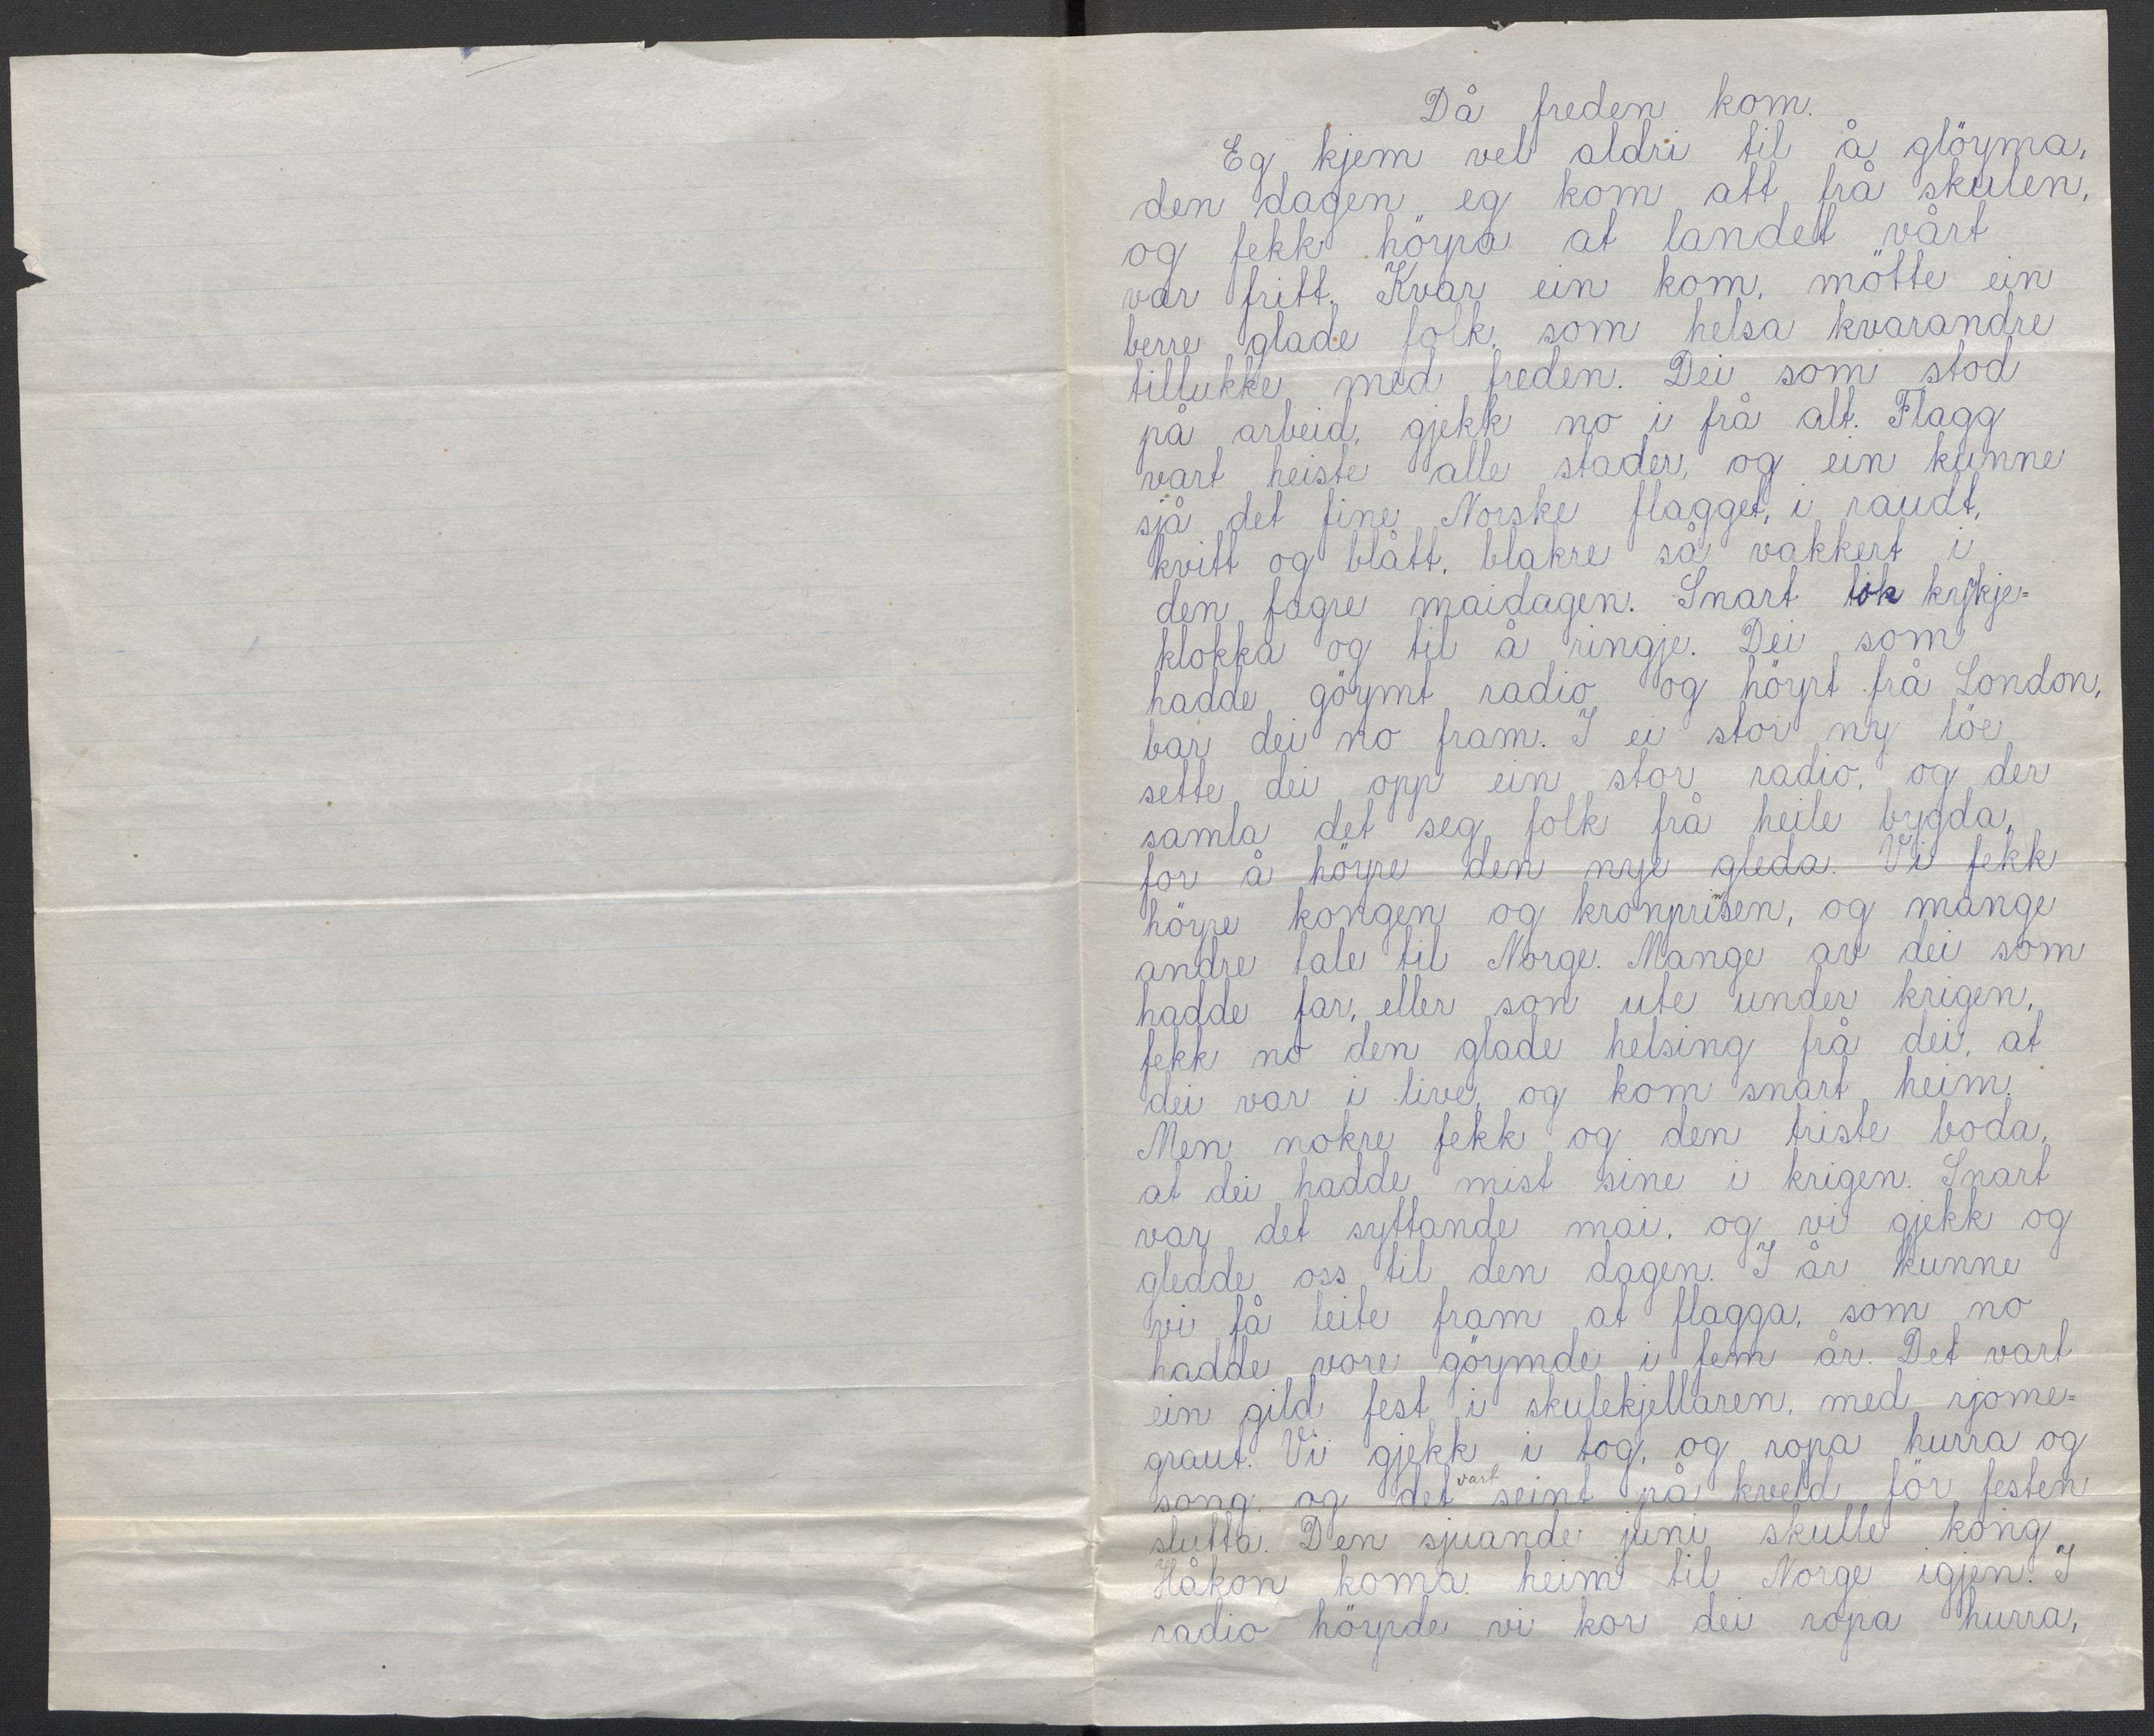 Då freden kom.
Eg kjem vel aldri til å glöyma,
den dagen eg kom att frå skulen,
og fekk höyra at landet vårt
var fritt. Kvar ein kom, mötte ein
berre glade folk, som helsa kvarandre
tillukke med freden. Dei som stod
på arbeid, gjekk no i frå alt. Flagg
vart heiste alle stader, og ein kunne
sjå det fine Norske flagget, i raudt,
kvitt og blått, blakre så vakkert i
den fagre maidagen. Snart tok kyrkje=
klokka og til å ringje. Dei som
hadde göymt radio og höyrt frå London,
bar dei no fram. I ei stor ny löe
sette dei opp ein stor radio, og der
samla det seg folk frå heile bygda,
for å höyre den nye gleda. Vi fekk
höyre kongen og kronprinsen, og mange
andre tale til Norge. Mange av dei som
hadde far, eller son ute under krigen,
fekk no den glade helsing frå dei, at
dei var i live, og kom snart heim.
Men nokre fekk og den triste boda,
at dei hadde mist sine i krigen. Snart
var det syttande mai, og vi gjekk og
gledde oss til den dagen. I år kunne
vi få leite fram at flagga, som no
hadde vore göymde i fem år. Det vart
ein gild fest i skulekjellaren, med rjome=
graut. Vi gjekk i tog, og ropa hurra og
song, og det vart seint på kveld för festen
slutta. Den sjuande juni skulle kong
Håkon koma heim til Norge igjen. I
radio höyrde vi kor dei ropa hurra,